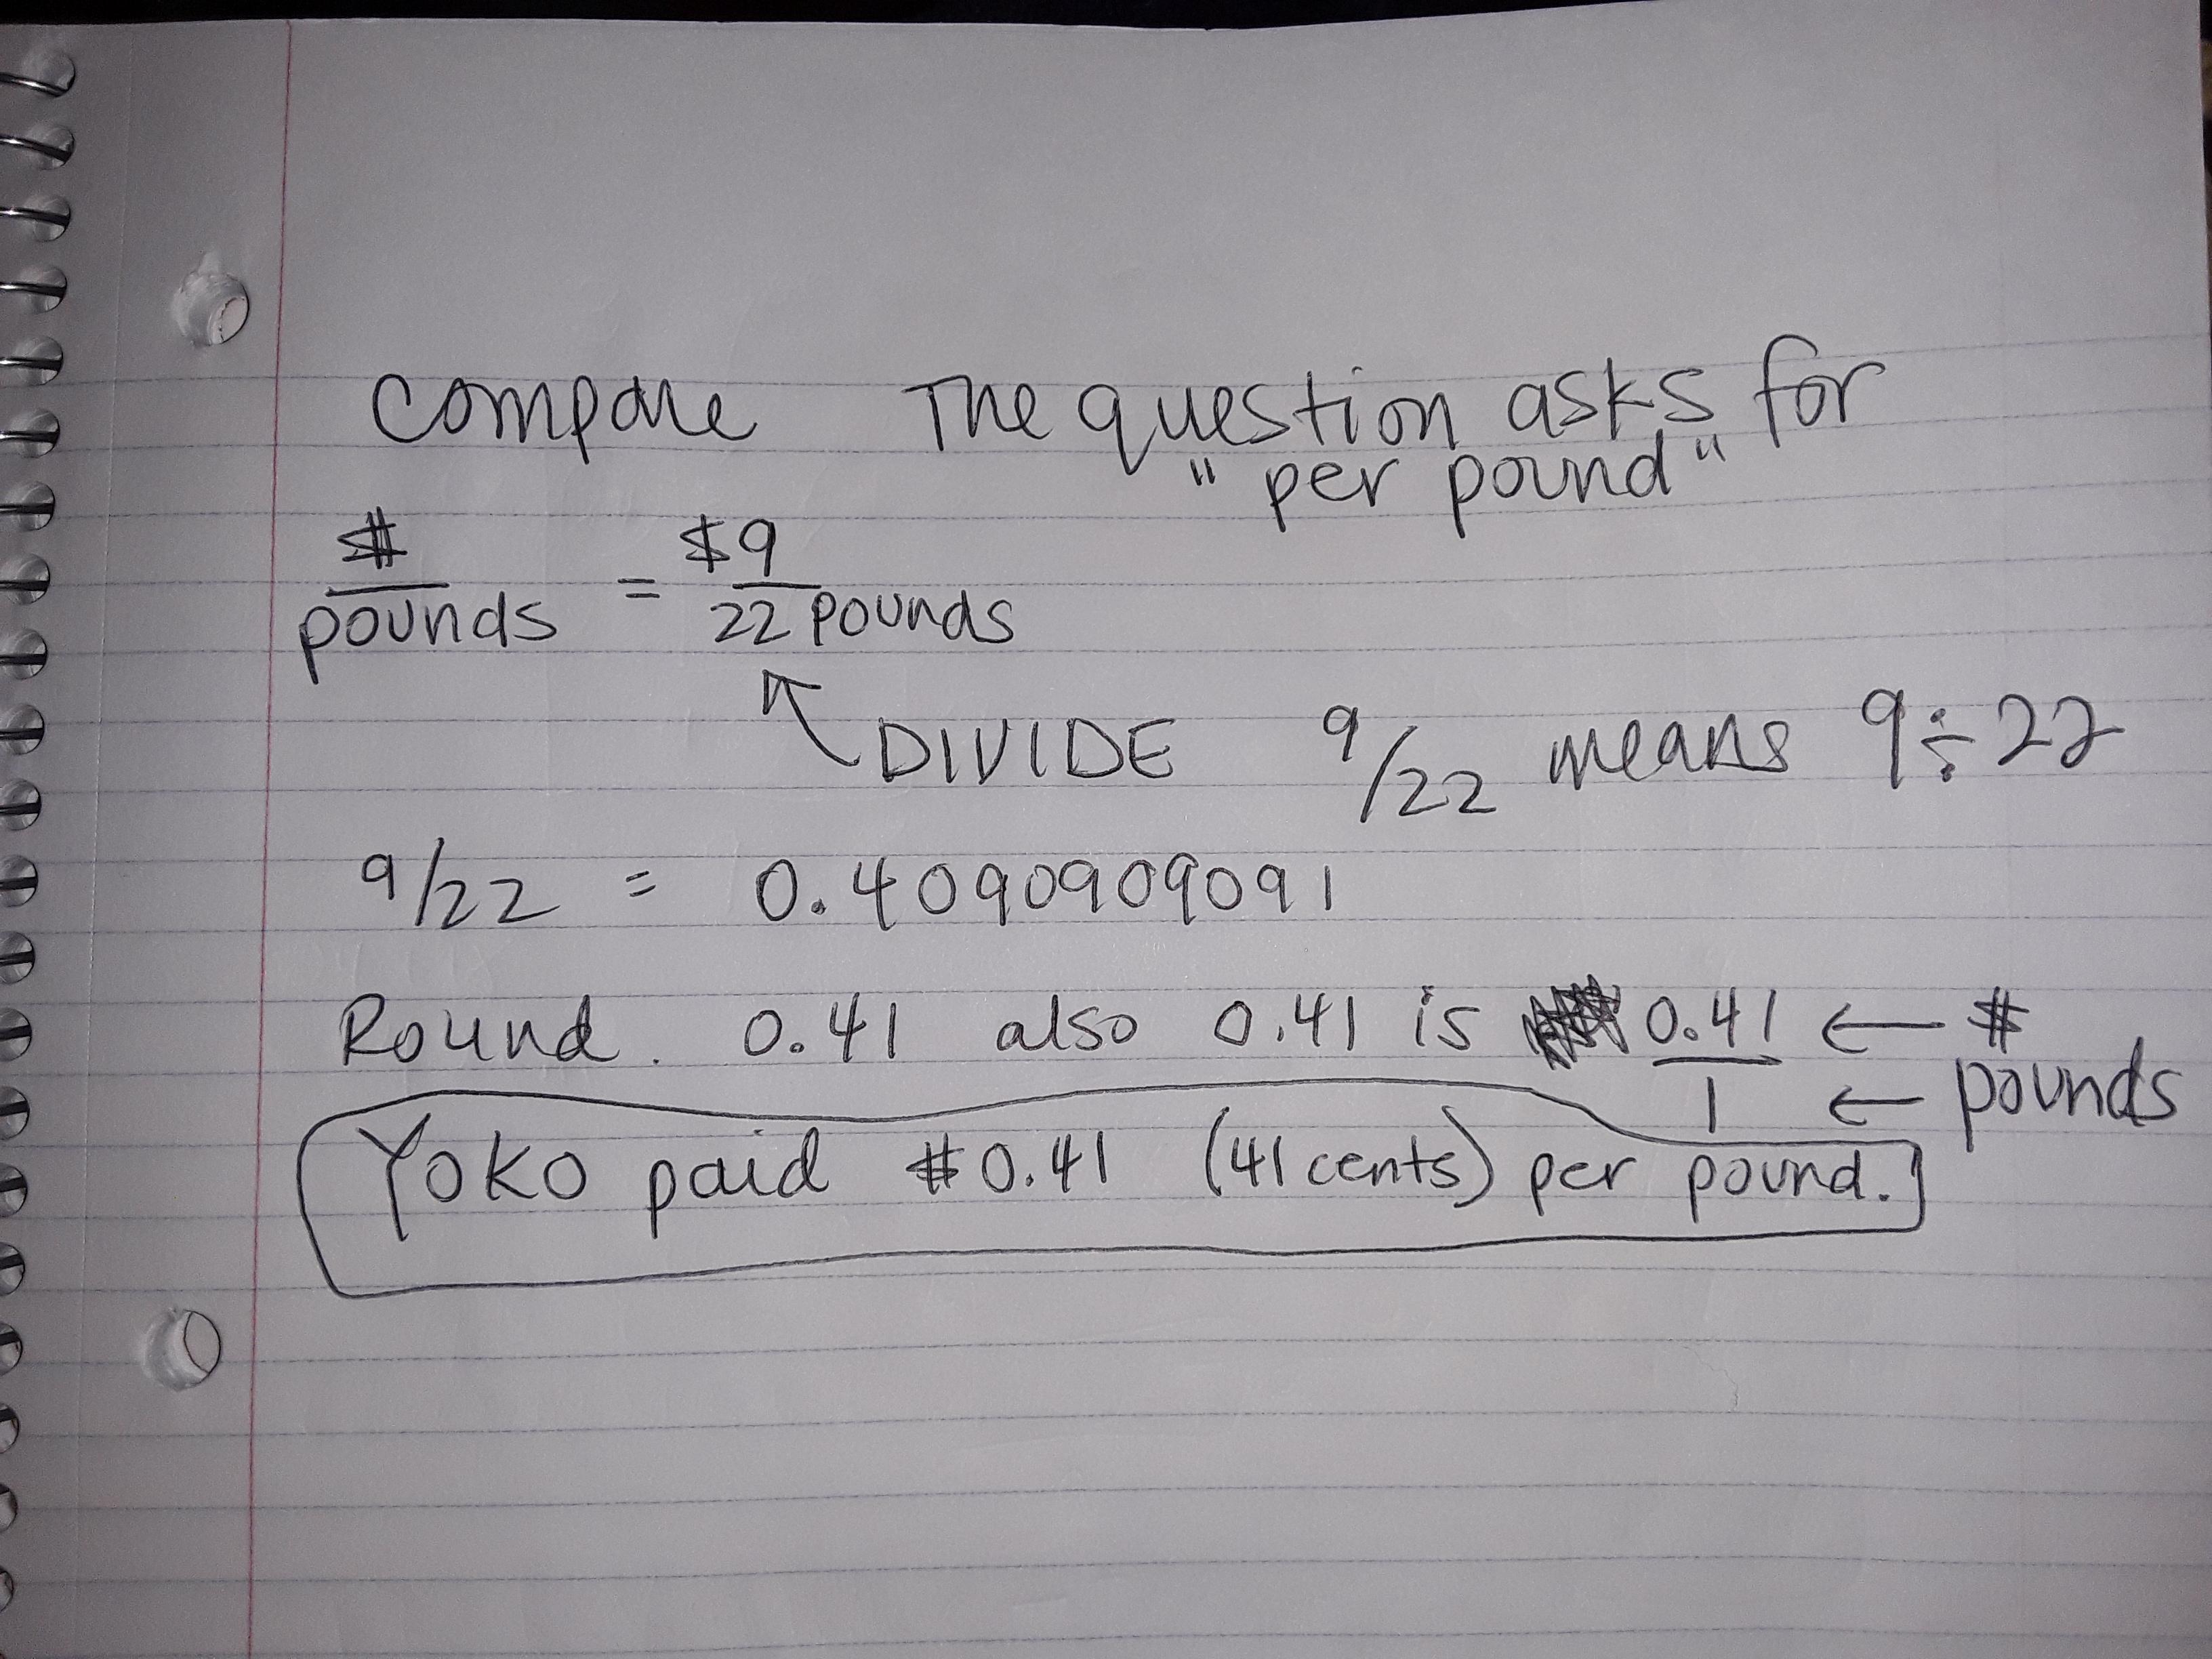 Compare The question asks for
"per pound"
$ = $9
pounds 22 pounds
DIVIDE 9/22 means 9÷22
9/22 = 0.4090909091
Round. 0.41 also 0.41 is 0.41 ← $
1 ← pounds
Yoko paid $0.41 (41 cents) per pound.